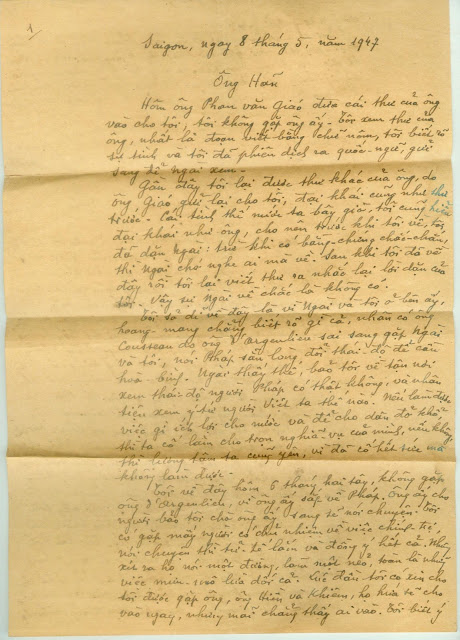 1
Saigon, ngay 8 tháng 5, năm 1947
Ông Hãn
Hôm ông Phan văn Giáo đưa cái thư của ông
vào cho tôi, tôi không gặp ông ấy. Tôi xem thư của
ông, nhất là đoạn viết bằng chữ nôm, tôi biết rõ
sự tình và tôi đã phiên dịch ra quốc-ngữ, gửi
sang để ngài xem.
Gần đây tôi lại được thư khác của ông, do
ông Giáo gửi lại cho tôi, đại khái cũng như thư
trước. Cái tình thế nước ta bây giờ, tôi cũng hiểu
đại khái như ông, cho nên trước khi tôi về, tôi
đã dặn Ngài: trừ khi có bằng-chứng chắc-chắn,
thì Ngài chớ nghe ai mà về. Sau khi tôi đã về
đây rồi tôi lại viết thư ra nhắc lại lời dặn của
tôi. Vậy sự Ngài về chắc là không có.
Tôi sở dĩ về đây là vì Ngài và tôi ở bên ấy,
hoang-mang chẳng biết rõ gì cả, nhân có ông
Cousseau do ông d'Argenlieu sai sang gặp Ngài
và tôi, nói Pháp sẵn lòng đổi thái-độ để cầu
hoà-bình. Ngài thấy thế, bảo tôi về tận nơi
xem thái-độ người Pháp có thật không, và nhân
tiện xem ý-tứ người Việt ta thế nào. Nếu làm được
việc gì ích lợi cho nước và để cho dân đỡ khổ,
thì ta cố làm cho trọn nghĩa-vụ của mình, nếu không,
thì lương tâm ta cũng yên, vì đã cố hết sức mà
không làm được.
Tôi về đây hôm 6 tháng hai tây, không gặp
ông d'Argenlieu, vì ông ấy sắp về Pháp. Ông ấy cho
người bảo tôi cho ông ấy sang tế nói chuyện. Tôi
có gặp mấy người có chủ nhiệm về việc chính-trị,
nói chuyện thì tử-tế lắm và đồng ý hết cả. Nhưng
xét ra họ nói một đường, làm một nẻo, toàn là những
việc mưu-mô lừa dối cả. Lúc đầu tôi có xin cho
tôi được gặp ông, ông Hiền và Khiêm, họ hứa tế cho
vào ngay, nhưng mãi chẳng thấy ai vào. Tôi biết ý